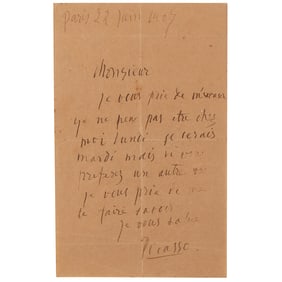 Paris 22 Juin 1907
Monsieur
Je vous prie de
que je ne peux pas etre chez
moi lundi je serais
mardi mais si vous
preferez un autre
je vous prie de me
le faire savoir
Je vous salue
Picasso